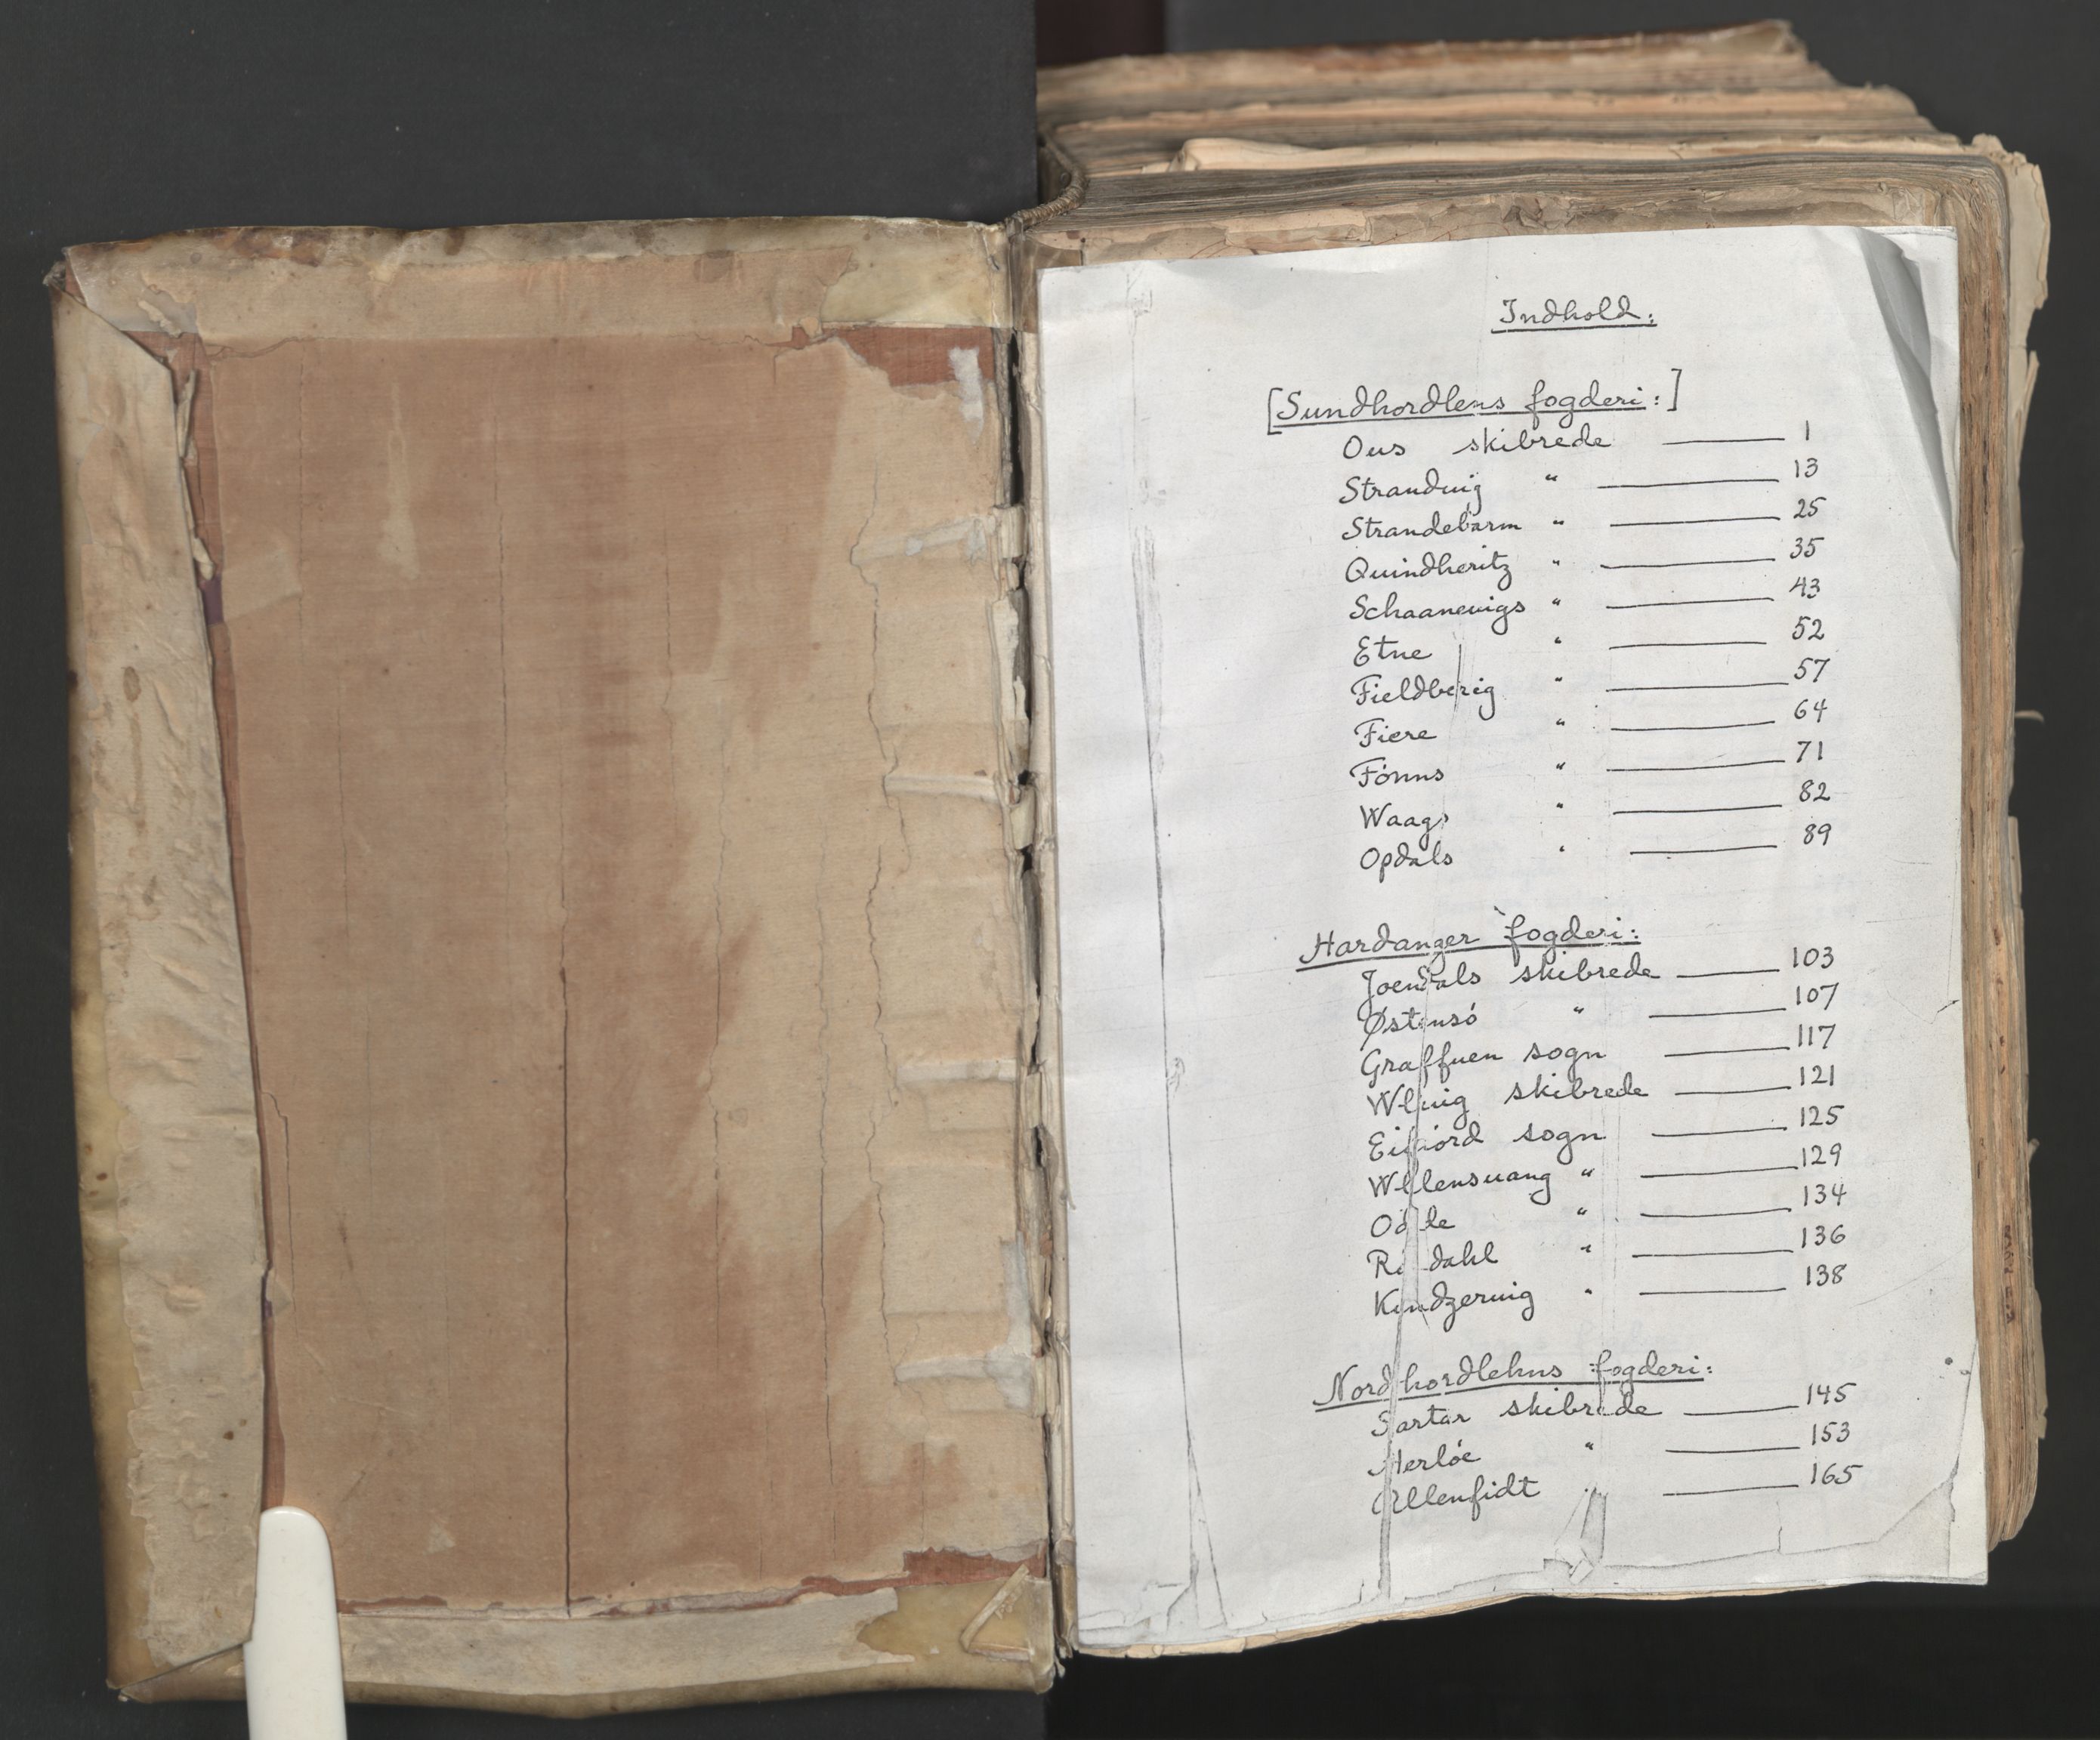 Indhold:
[Sundhordlens fogderi:]
Ous skibrede — 1
Strandvig " — 13
Strandebarm " — 25
Quindheritz " — 35
Schaanevigs " — 43
Etne " — 52
Fieldberig " — 57
Fiere " — 64
Fónns " — 71
Waags " — 82
Opdals " — 89
Hardanger fogderi:
Joendals skibrede — 103
Østensó " — 107
Graffuen sogn — 117
Wluig skibrede — 121
Eifiord sogn — 125
Wllensuang " — 129
" — 134
" — 136
Kindzeruig " — 138
Nordhordlehns fogderi:
Sartar skibrede — 145
Herlóe " — 153
Allenfidt " — 165